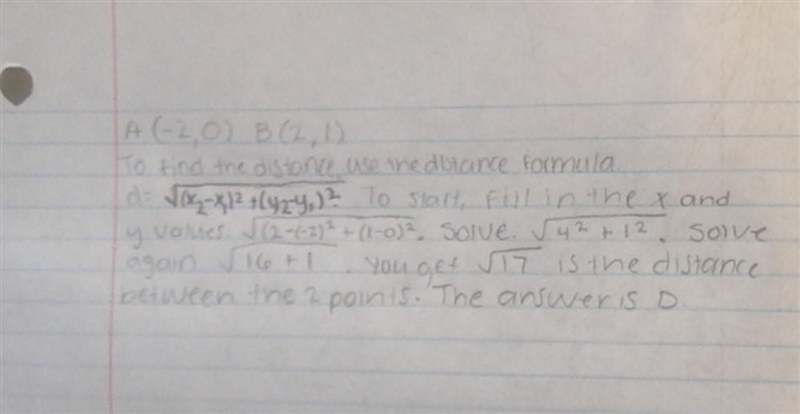 A (-2,0) B (2,1)
To find the distance use the distance formula.
d= √(x₂-x₁)² + (y₂-y₁)². To start, fill in the x and
y values. √(2-(-2)² + (1-0)². Solve. √4² + 1². Solve
again √16 + 1. You get √17 is the distance
between the 2 points. The answer is D.